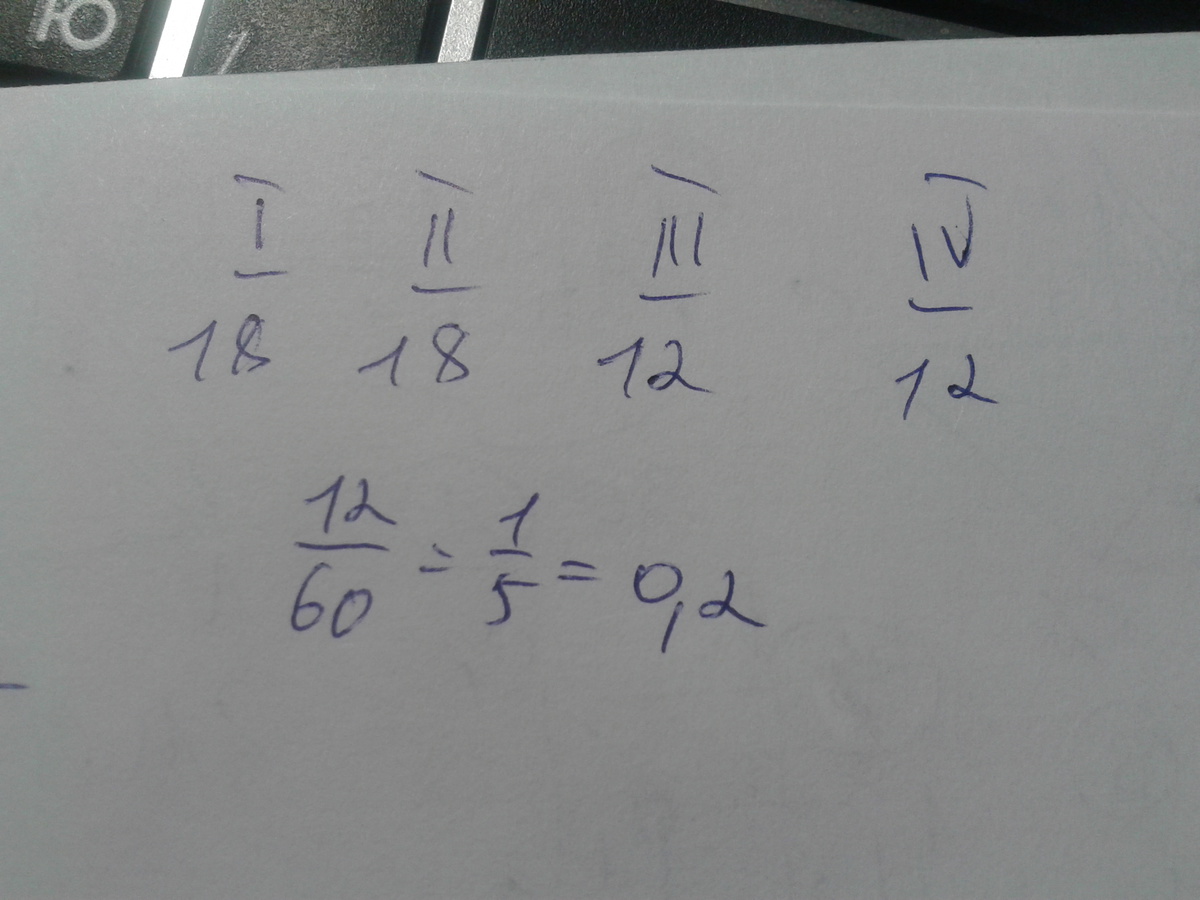 Ю
I II III IV
18 18 12 12
12/60 = 1/5 = 0,2